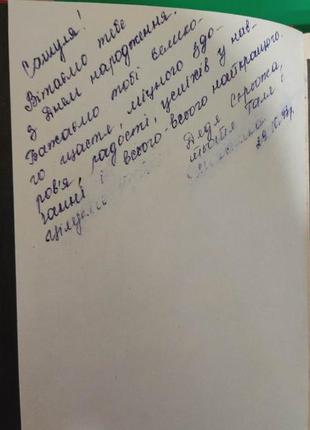 Сашуля!
Вітаємо тебе
з Днем народження.
Бажаємо тобі велико-
го щастя, міцного здо-
ров'я, радості, успіхів у нав-
чанні і всього-всього найкращого.
Цілуємо
Дядя Сережа,
тьотя Галя і